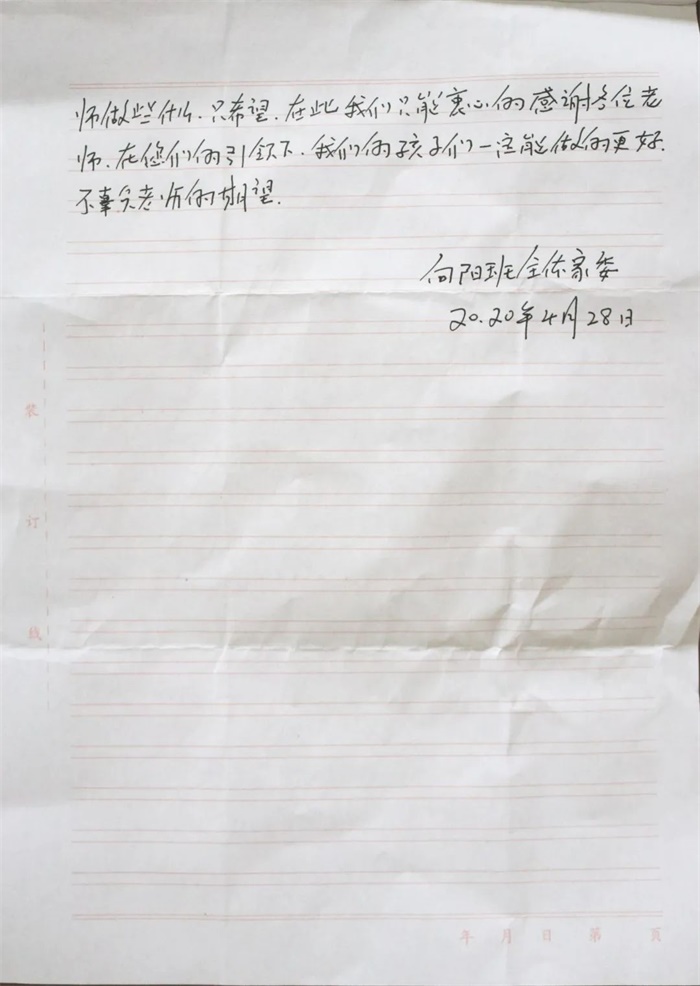 师做些什么.只希望.在此我们只能衷心的感谢各位老
师.在您们的引领下.我们的孩子们一定能做的更好.
不辜负老师的期望.
向阳班全体家委
2020年4月28日
装
订
线
年 月 日 第 页